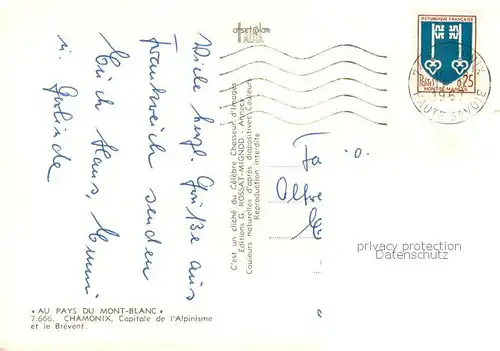 Viele herzl. Grüße aus
Frankreich senden
Euch Hans,
u. Gerlinde
OFFSET COLOR
C'est un cliché du Célèbre Chasseur d'Images
Editions G. ROSSAT-MIGNOD - Annecy
Couleurs naturelles d'après diapositives couleurs
Reproduction interdite
REPUBLIQUE FRANÇAISE
Postes 0,25
MONT-DE-MARSAN
HAUTE-SAVOIE
Fa
privacy protection
Datenschutz
« AU PAYS DU MONT-BLANC »
7.666. CHAMONIX, Capitale de l'Alpinisme
et le Brévent.